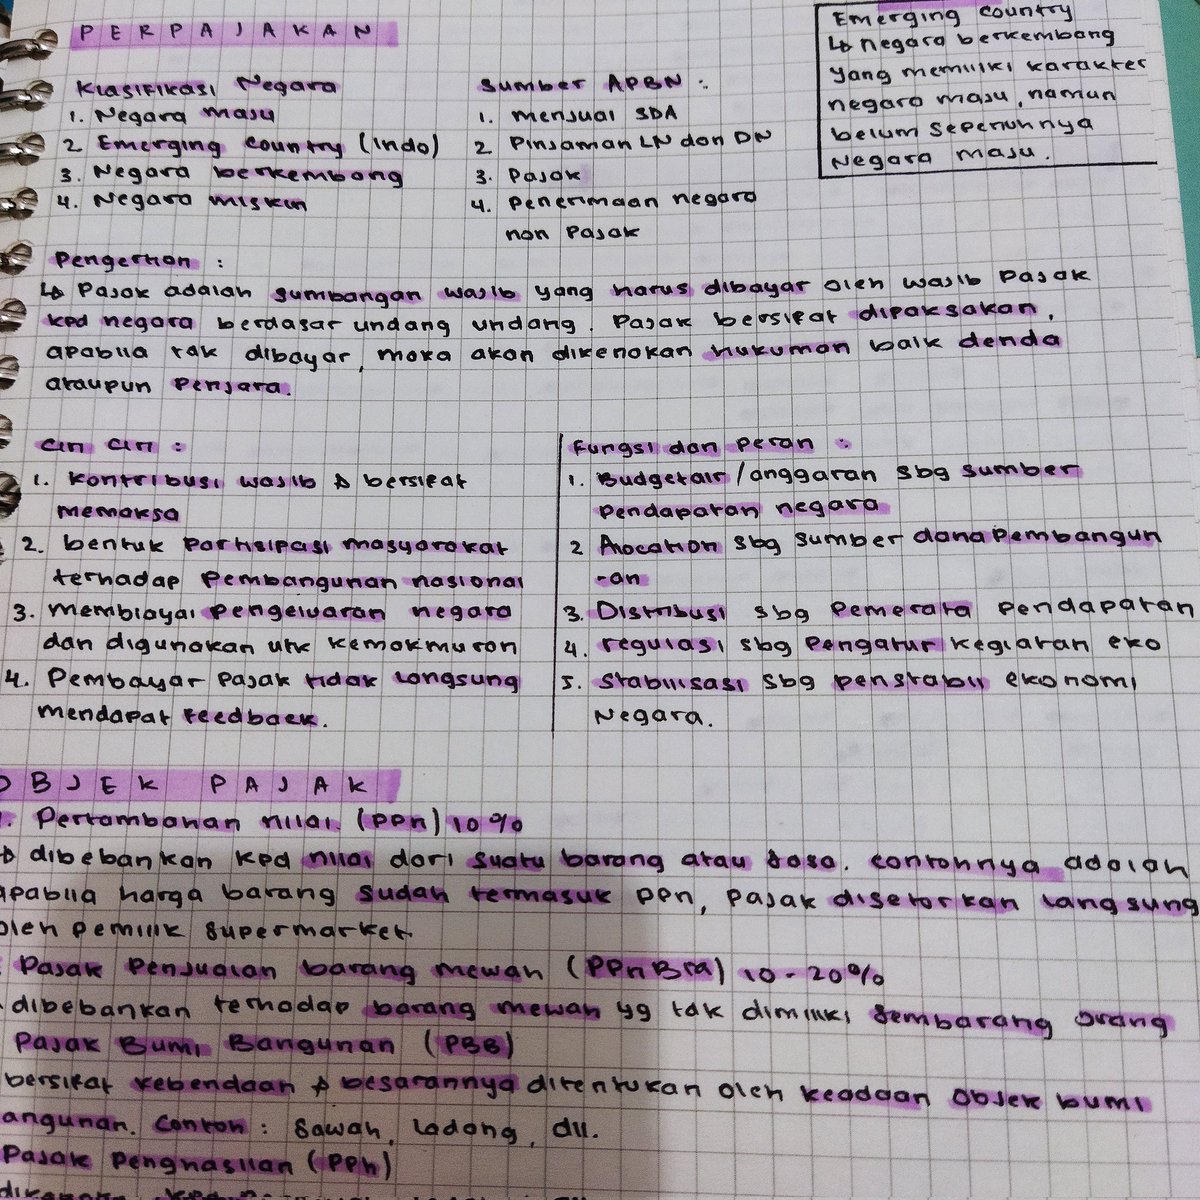 PERPAJAKAN
Klasifikasi Negara
1. Negara maju
2 Emerging country (Indo)
3. Negara berkembang
4. Negara miskin
Sumber APBN :
1. menjual SDA
2 Pinjaman LN dan DN
3. Pajak
4. Penerimaan negara
non pajak
Emerging country
↳ negara berkembang
yang memiliki karakter
negara maju, namun
belum sepenuhnya
Negara maju.
Pengertian :
↳ Pajak adalah sumbangan wajib yang harus dibayar oleh wajib pajak
kpd negara berdasar undang undang. Pajak bersifat dipaksakan,
apabila tak dibayar, maka akan dikenakan hukuman baik denda
ataupun penjara.
Ciri ciri :
1. Kontribusi wajib & bersifat
memaksa
2. bentuk partisipasi masyarakat
terhadap pembangunan nasional
3. membiayai pengeluaran negara
dan digunakan utk kemakmuran
4. Pembayar pajak tidak langsung
mendapat feedback.
Fungsi dan peran :
1. Budgetair / anggaran sbg sumber
pendapatan negara
2 Alocation sbg sumber dana pembangun
-an
3. Distribusi sbg pemerata pendapatan
4. regulasi sbg pengatur kegiatan eko
5. Stabilisasi sbg penstabil ekonomi
Negara.
OBJEK PAJAK
1. Pertambahan nilai. (PPn) 10%
↳ dibebankan kpd nilai dari suatu barang atau jasa. contohnya adalah
apabila harga barang sudah termasuk ppn, pajak disetorkan langsung
oleh pemilik supermarket
Pajak Penjualan barang mewah (PPnBM) 10-20%
dibebankan terhadap barang mewah yg tak dimiliki sembarang orang
Pajak Bumi Bangunan (PBB)
bersifat kebendaan & besarannya ditentukan oleh keadaan objek bumi
angunan. Contoh : sawah, ladang, dll.
Pajak Penghasilan (PPh)